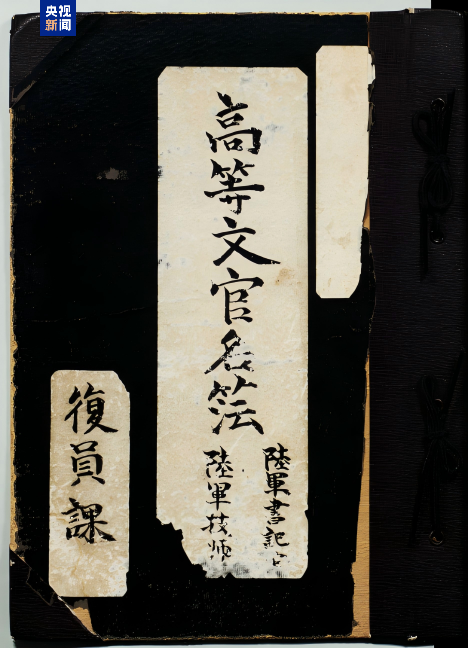 央视
新闻
高等文官名簿
陸軍書記官
陸軍技师
復員課